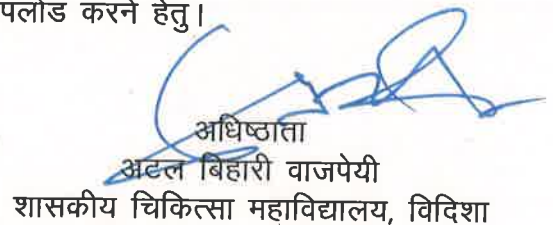 पलोड करने हेतु।
अधिष्ठाता
अटल बिहारी वाजपेयी
शासकीय चिकित्सा महाविद्यालय, विदिशा